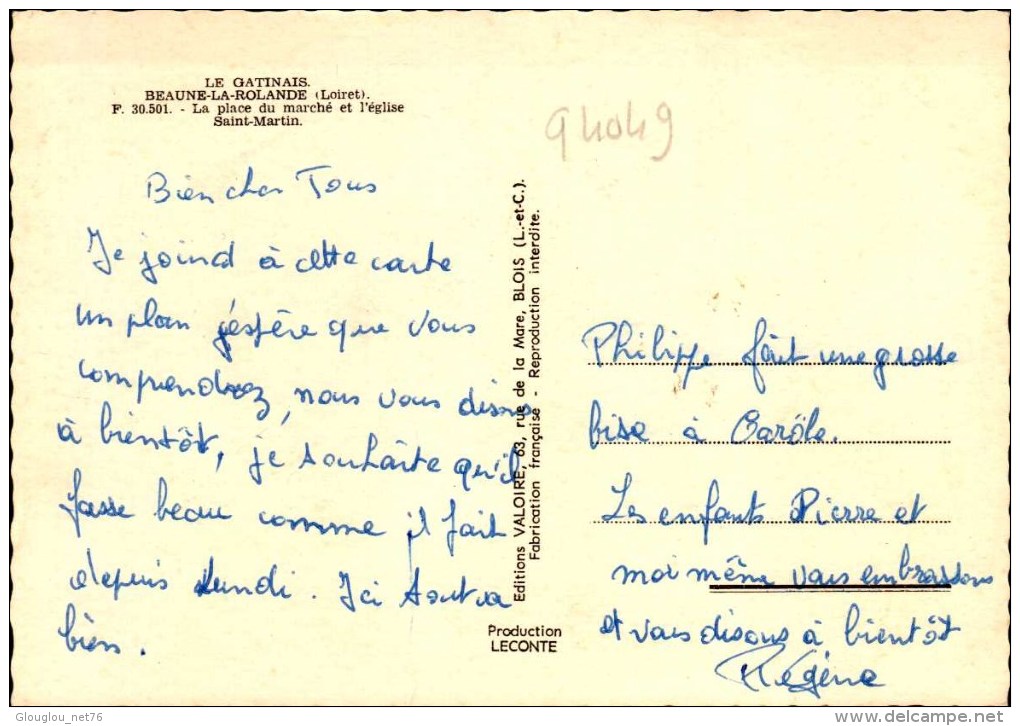 LE GATINAIS.
BEAUNE-LA-ROLANDE (Loiret).
F. 30.501. - La place du marché et l'église
Saint-Martin.
94049
Bien cher Tous
Je joind à cette carte
un plan j'éspère que vous
comprendrez, nous vous disons
à bientôt, je souhaite qu'il
fasse beau comme il fait
depuis Lundi. Ici tout va
bien.
Editions VALOIRE, 63, rue de la Mare, BLOIS (L.-et-C.).
Fabrication française - Reproduction interdite.
Production
LECONTE
Philippe fait une grosse
bise à Carôle.
Les enfants Pierre et
moi même vous embrassons
et vous disons à bientôt
Régine
Glouglou_net76
delcampe.net